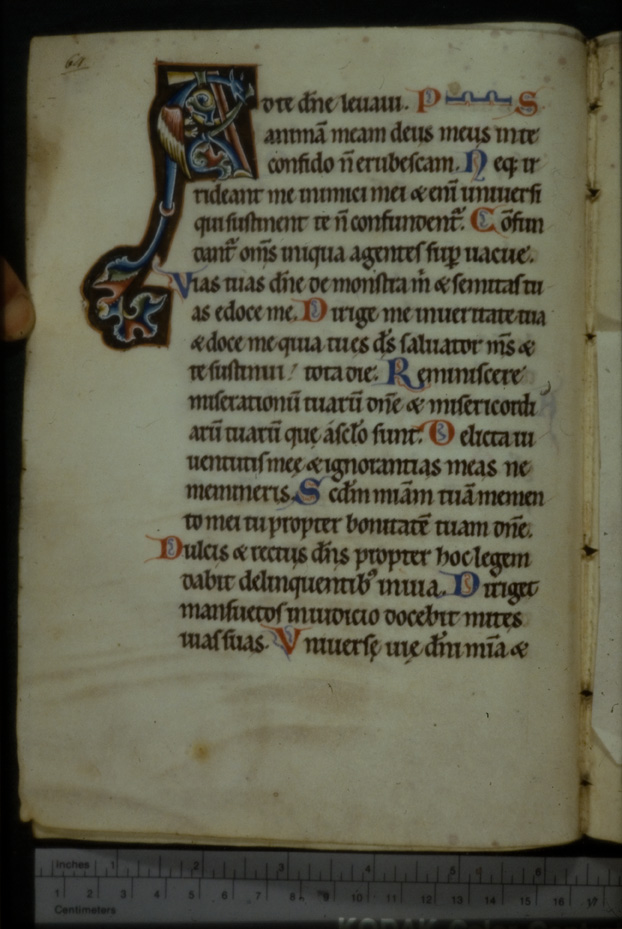 64
Ad te dñe leuaui. P S
animā meam deus meus in te
confido ñ erubescam. Neq; ir
rideant me inimici mei & enī uniuersi
qui sustinent te ñ confundent᷑. Cōfun
dant᷑ om̄s iniqua agentes sup̱ uacue.
Vias tuas dñe demonstra m̄ & semitas tu
as edoce me. Dirige me in ueritate tua
& doce me quia tu es d̄s saluator m̄s &
te sustinui tota die. Reminiscere
miserationū tuarū dñe & misericordi
arū tuarū que a sc̄lo sunt. Delicta iu
uentutis meę & ignorantias meas ne
memineris. Scd̄m miam̄ tuā memen
to mei tu propter bonitatē tuam dñe.
Dulcis & rectus dñs propter hoc legem
dabit delinquentib᷒ in uia. Diriget
mansuetos in iudicio docebit mites
uias suas. Vniuersę uię dñi mia &
Inches 1 2 3 4 5 6
1 2 3 4 5 6 7 8 9 10 11 12 13 14 15 16 17
Centimeters